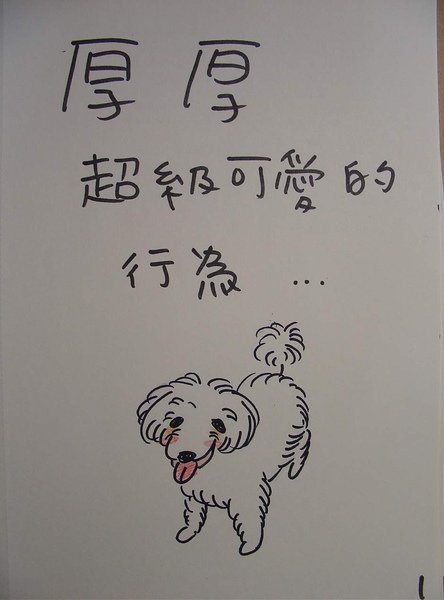 厚厚
超級可愛的
行為...
1